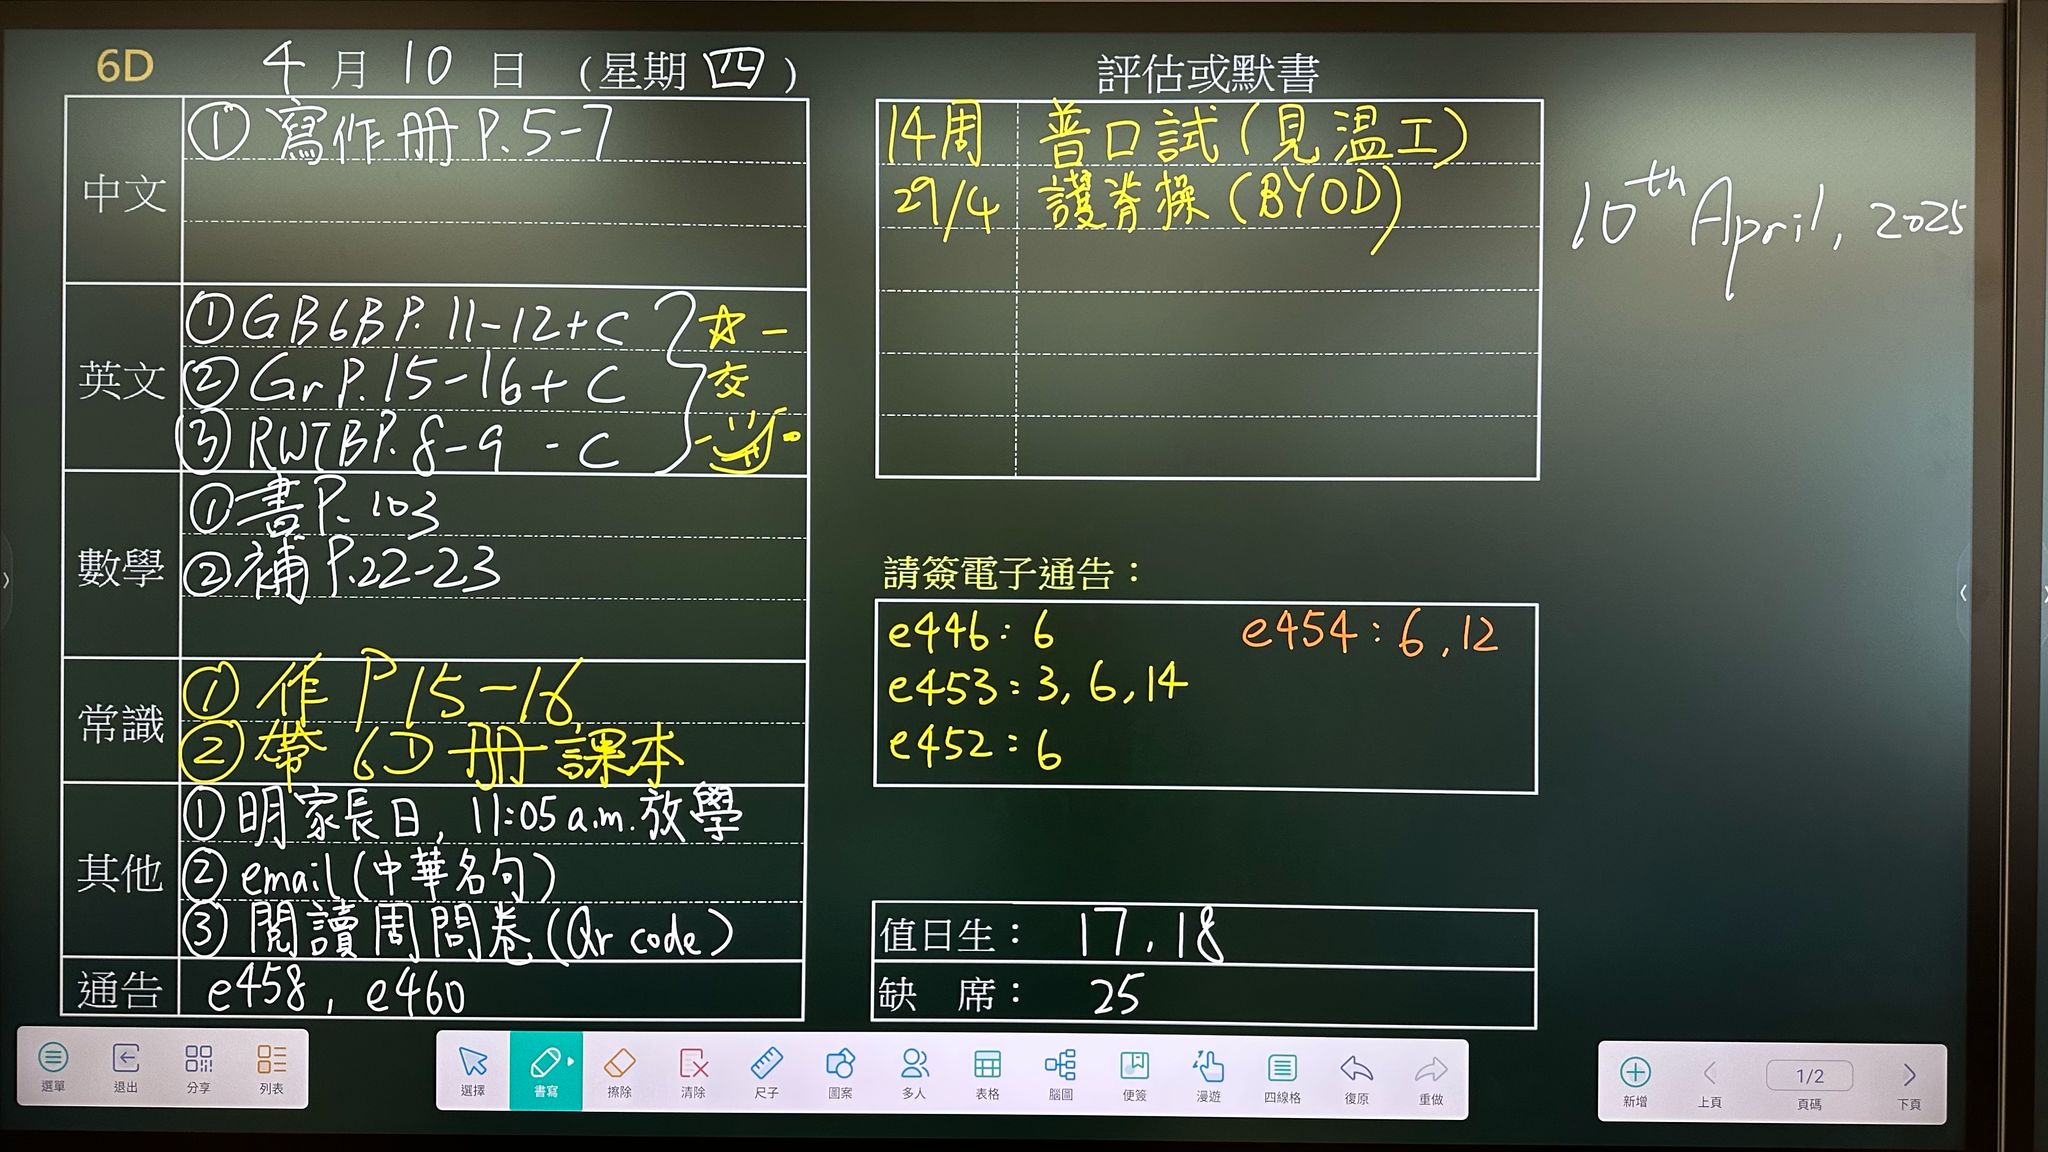 6D 4月10日 (星期四)
中文
① 寫作册 P.5-7
英文
① GB6B P.11-12+C
② Gr P.15-16+C
③ RWTB P.8-9 - C
☆一
交
數學
① 書 P.103
② 補 P.22-23
常識
① 作 P15-16
② 帶 6D 册 課本
其他
① 明家長日, 11:05 a.m. 放學
② email (中華名句)
③ 閱讀周問卷 (Qr code)
通告
e458, e460
評估或默書
14周 普口試 (見溫工)
29/4 護脊操 (BYOD)
請簽電子通告：
e446: 6 e454: 6, 12
e453: 3, 6, 14
e452: 6
值日生： 17, 18
缺 席： 25
10th April, 2025
選單 退出 分享 列表
選擇 書寫 擦除 清除 尺子 圖案 多人 表格 腦圖 便簽 漫遊 四線格 復原 重做
新增 上頁 1/2 頁碼 下頁